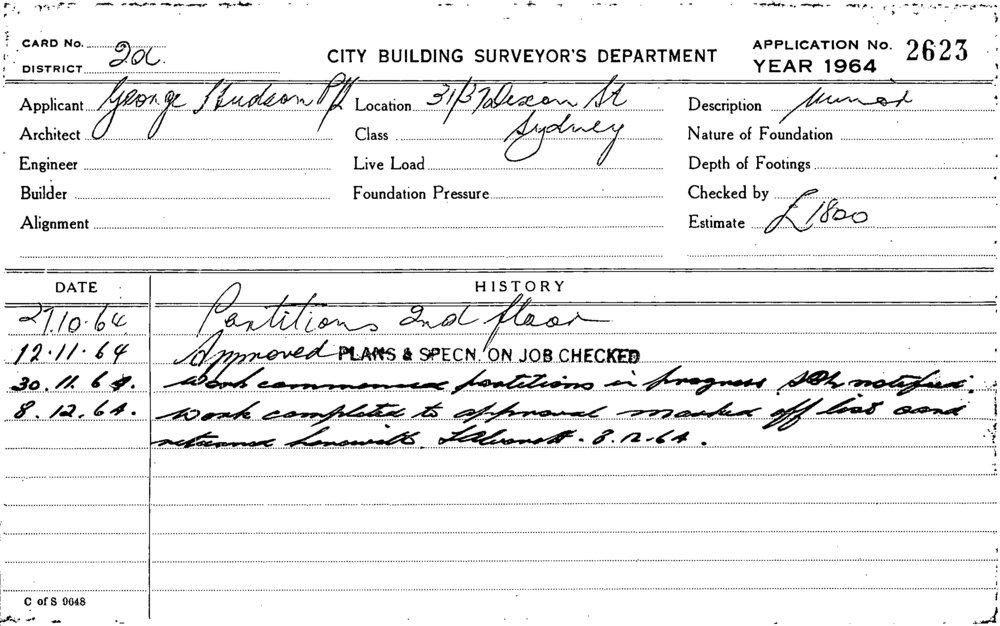 CARD No.
DISTRICT 2a.
CITY BUILDING SURVEYOR'S DEPARTMENT
APPLICATION No. 2623
YEAR 1964
Applicant George Hudson P/L Location 31/37 Dixon St Description Minor
Architect Class Sydney Nature of Foundation
Engineer Live Load Depth of Footings
Builder Foundation Pressure Checked by
Alignment Estimate £1800
DATE HISTORY
27.10.64 Partitions 2nd floor
12.11.64 Approved PLANS & SPECN. ON JOB CHECKED
30.11.64. Work commenced partitions in progress notified.
8.12.64. Work completed to approval marked off list and
returned herewith. 8.12.64.
C of S 9648